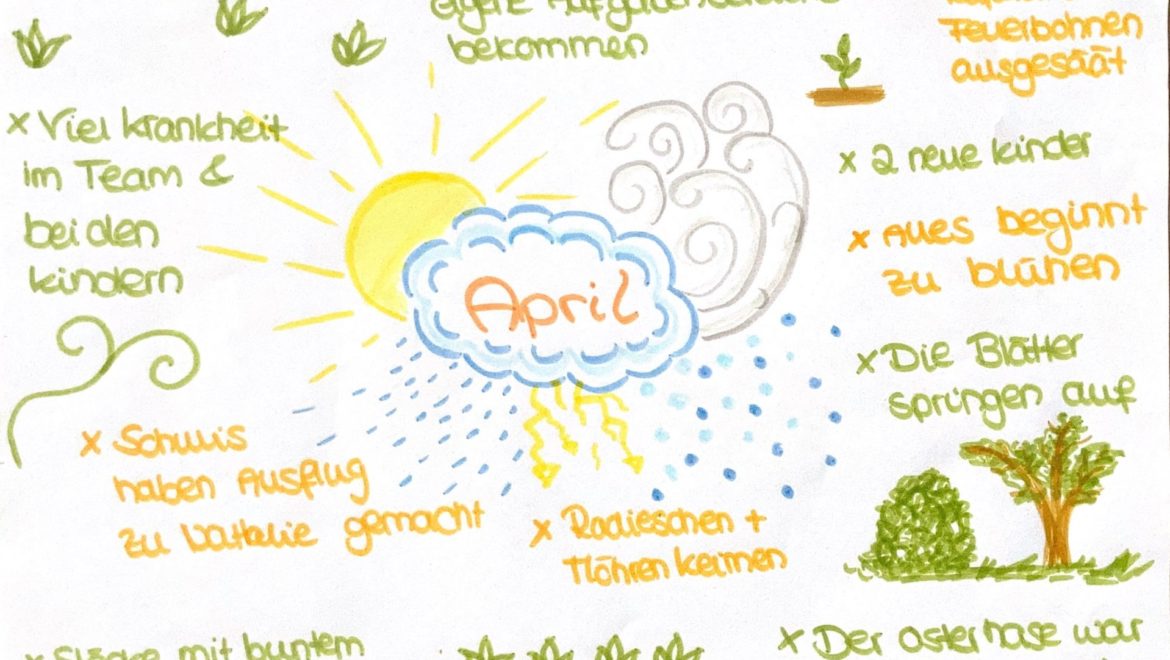 eigene Aufgabenbereiche
bekommen
Feuerbohnen
ausgesäät
x Viel Krankheit
im Team &
bei den
Kindern
April
x 2 neue Kinder
x Alles beginnt
zu blühen
x Die Blätter
springen auf
x
haben Ausflug
zu gemacht
x Radieschen +
Möhren keimen
mit buntem
x Der Osterhase war